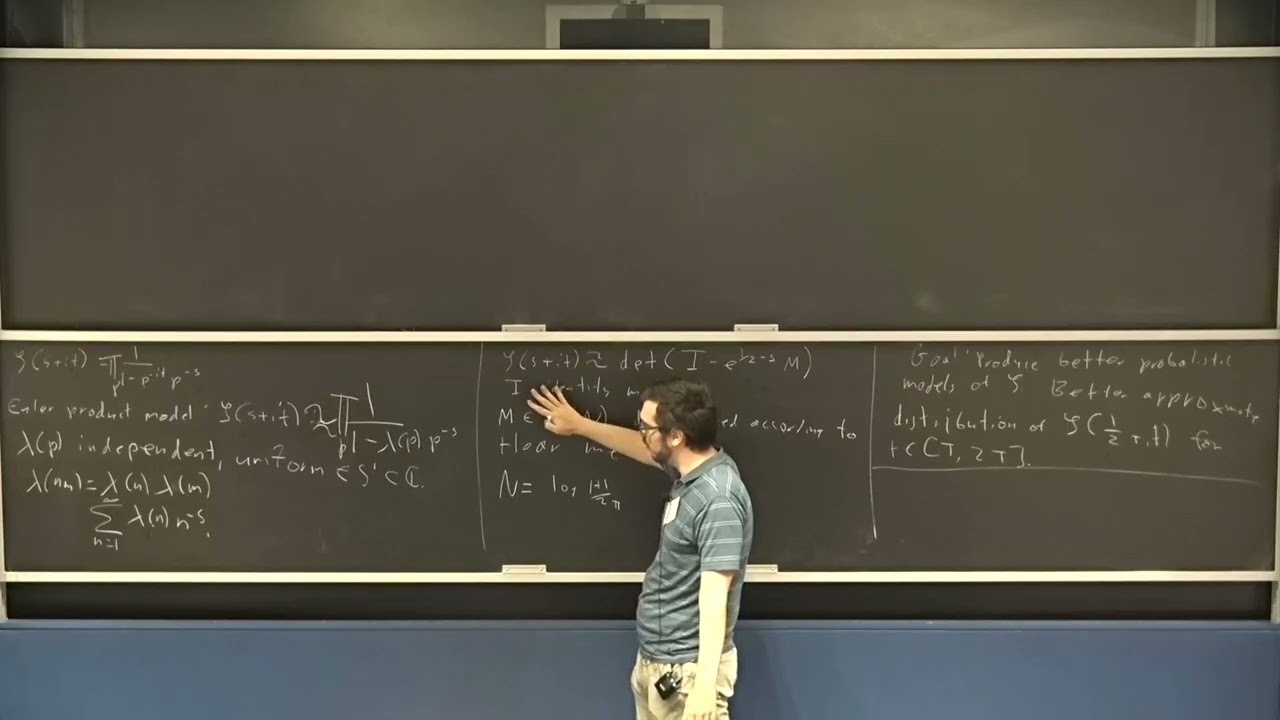 ζ(s+it) = ∏_p 1/(1 - p^{-it} p^{-s})
Euler product model: ζ(s+it) ≈ ∏_p 1/(1 - λ(p) p^{-s})
λ(p) independent, uniform ∈ S¹ ⊂ ℂ.
λ(nm) = λ(n) λ(m)
∑_{n=1}^∞ λ(n) n^{-s}.
ζ(s+it) ≈ det(I - e^{1/2-s} M)
I identity
M ∈ according to
Haar
N = log |t|/2π
Goal: Produce better probalistic
models of ζ Better approximate
distribution of ζ(1/2 + it) for
t ∈ [T, 2T].